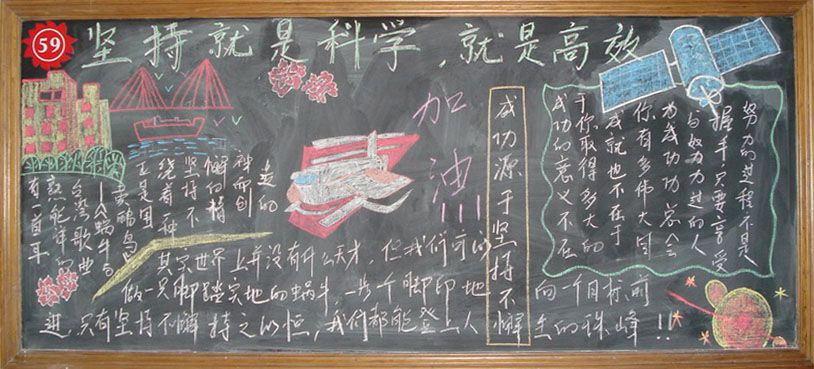 59
坚持就是科学，就是高效
有一首耳
熟能详的
台湾歌曲
《蜗牛与
黄鹂鸟》
正是围
绕着一种
坚持不
懈的精
神而创
造的
其实世界上并没有什么天才，但我们可以
做一只脚踏实地的蜗牛，一步个脚印地
向一个目标前
进，只有坚持不懈 持之以恒，我们都能登上人
生的珠峰!!
加油!!!
成功源于坚持不懈
成功的意义不在
于你取得多大的
成就也不在于
你有多伟大因
为成功 总会
与努力过的人
握手只要享受
努力的过程不是